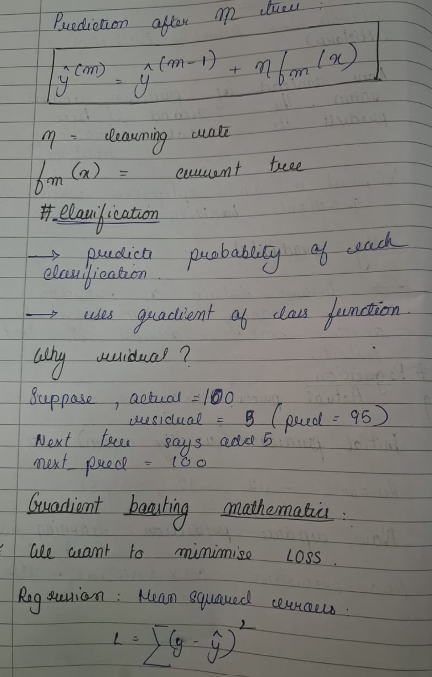 Prediction after M trees :
ŷ^(m) = ŷ^(m-1) + η f_m(x)
η = learning rate
f_m(x) = current tree
# Classification
→ predicts probablity of each
classification.
→ uses gradient of class function.
Why residual ?
Suppose, actual = 100
residual = 5 (pred = 95)
Next tree says add 5
next_pred = 100
Gradient boosting mathematics :
We want to minimise LOSS.
Regression : Mean squared errors.
L = ∑(y - ŷ)²